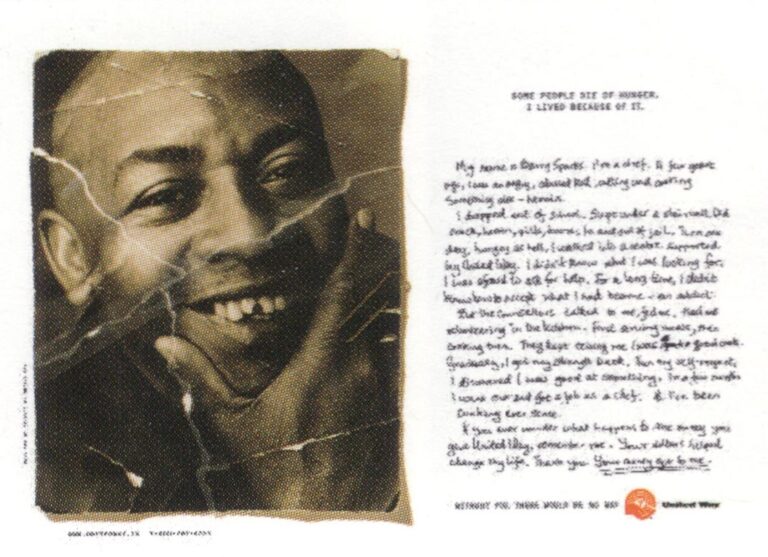 SOME PEOPLE DIE OF HUNGER.
I LIVED BECAUSE OF IT.
My name is Sparks. I'm a chef. A few years
ago, I was an angry, abused kid, cutting and
something else - heroin.
I dropped out of school. Slept under a stairwell. Did
crack, heroin, pills, In and out of jail. Then one
day, hungry as hell, I walked into a center supported
by United Way. I didn't know what I was looking for,
I was afraid to ask for help. For a long time, I didn't
know how to accept what I had become - an addict.
But the counsellors talked to me, fed me. Had me
volunteering in the kitchen - first serving meals, then
cooking them. They kept telling me I was a good cook.
Gradually, I got my strength back. Then my self-respect.
I discovered I was good at something. In a few months
I went out and got a job as a chef. I've been
cooking ever since.
If you ever wonder what happens to the money you
give United Way, remember me. Your dollars helped
change my life. Thank you. Your money got to me.
WITHOUT YOU, THERE WOULD BE NO WAY
United Way